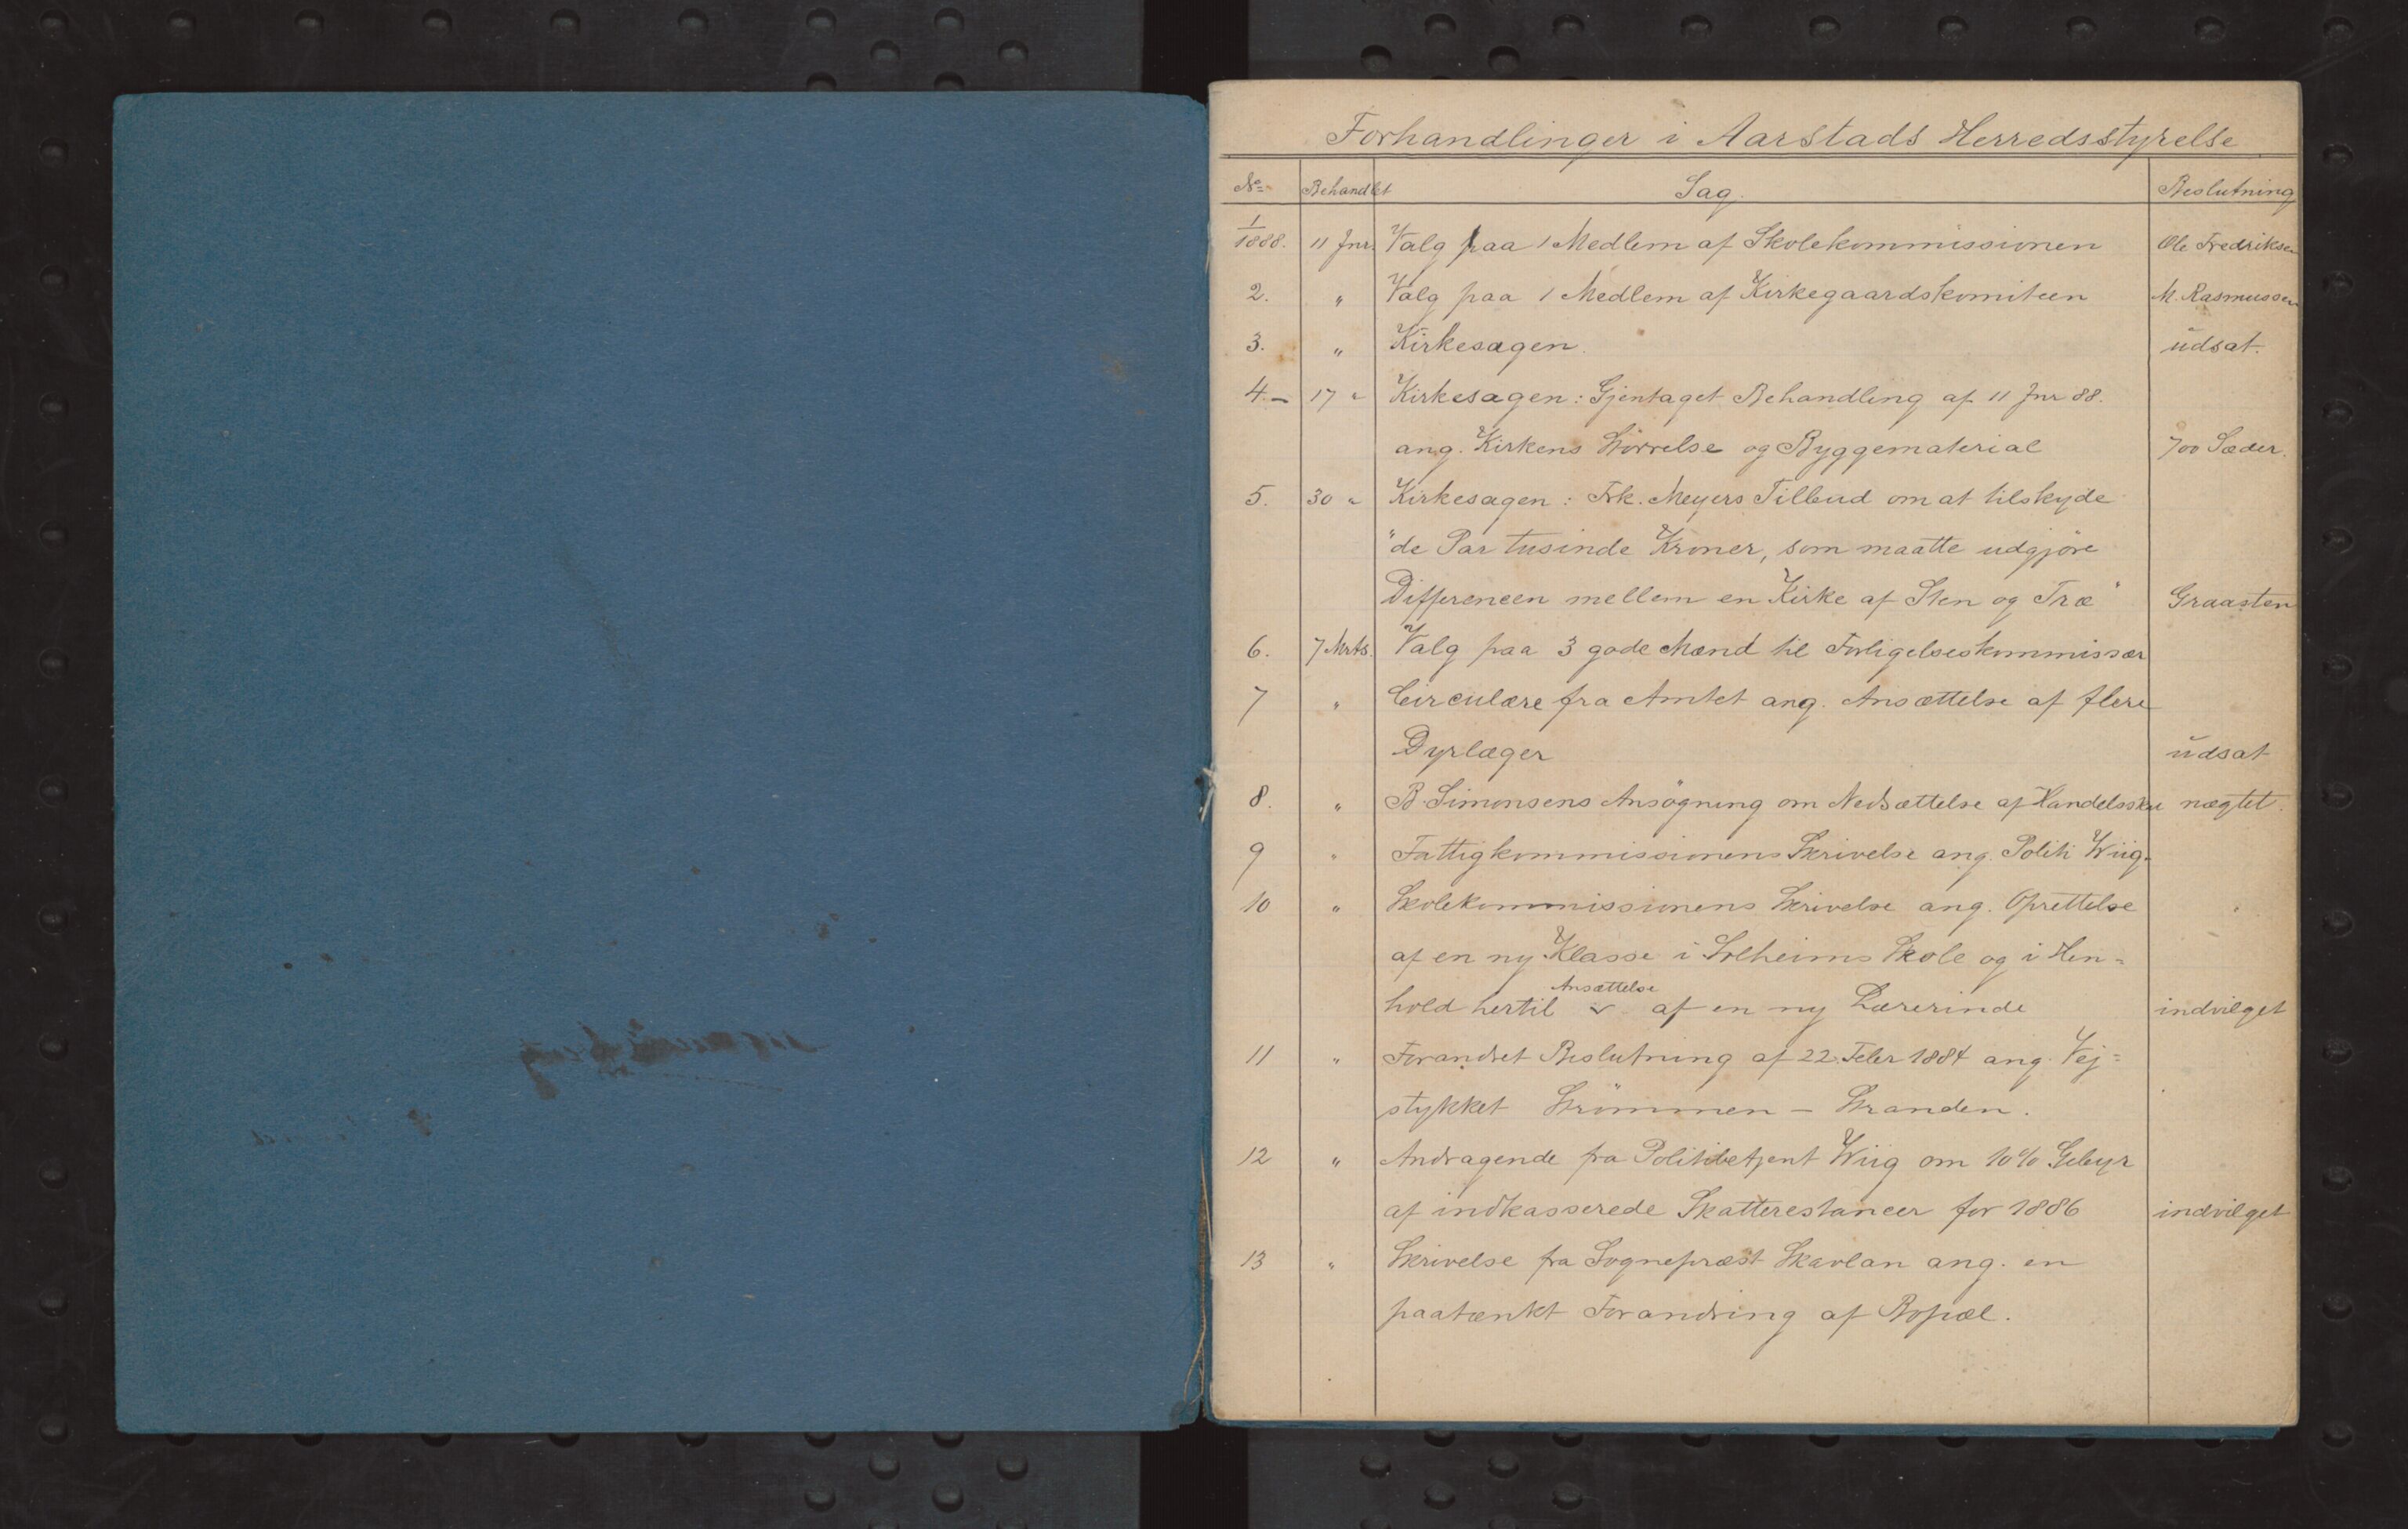 Forhandlinger i Aarstads Herredsstyrelse
No Behandlet Sag. Beslutning
1/1888. 11 Jnr. Valg paa 1 Medlem af Skolekommissionen Ole Fredriksen
2. " Valg paa 1 Medlem af Kirkegaardskomiteen M. Rasmussen
3. " Kirkesagen. udsat.
4 - 17 " Kirkesagen: Gjentaget Behandling af 11 Jnr 88.
ang. Kirkens Störrelse og Byggematerial 700 Sæder.
5. 30 " Kirkesagen: Frk. Meyers Tilbud om at tilskyde
"de Par tusinde Kroner, som maatte udgjöre
Differencen mellem en Kirke af Sten og Træ" Graasten
6. 7 Mrts. Valg paa 3 gode Mænd til Forligelseskommissær
7 " Circulære fra Amtet ang. Ansættelse af flere
Dyrlæger udsat
8. " B. Simonsens Ansögning om Nedsættelse af Handelsskat nægtet.
9 " Fattigkommissionens Skrivelse ang. Politi Wiig.
10 " Skolekommissionens Skrivelse ang. Oprettelse
af en ny Klasse i Solheims Skole og i Hen=
Ansættelse
hold hertil af en ny Lærerinde indvilget
11 " Forandret Beslutning af 22. Febr 1884 ang. Vej=
stykket Strömmen - Stranden.
12 " Andragende fra Politibetjent Wiig om 10% Gebyr
af indkasserede Skatterestancer for 1886 indvilget
13 " Skrivelse fra Sognepræst Skavlan ang. en
paatænkt Forandring af Bopæl.